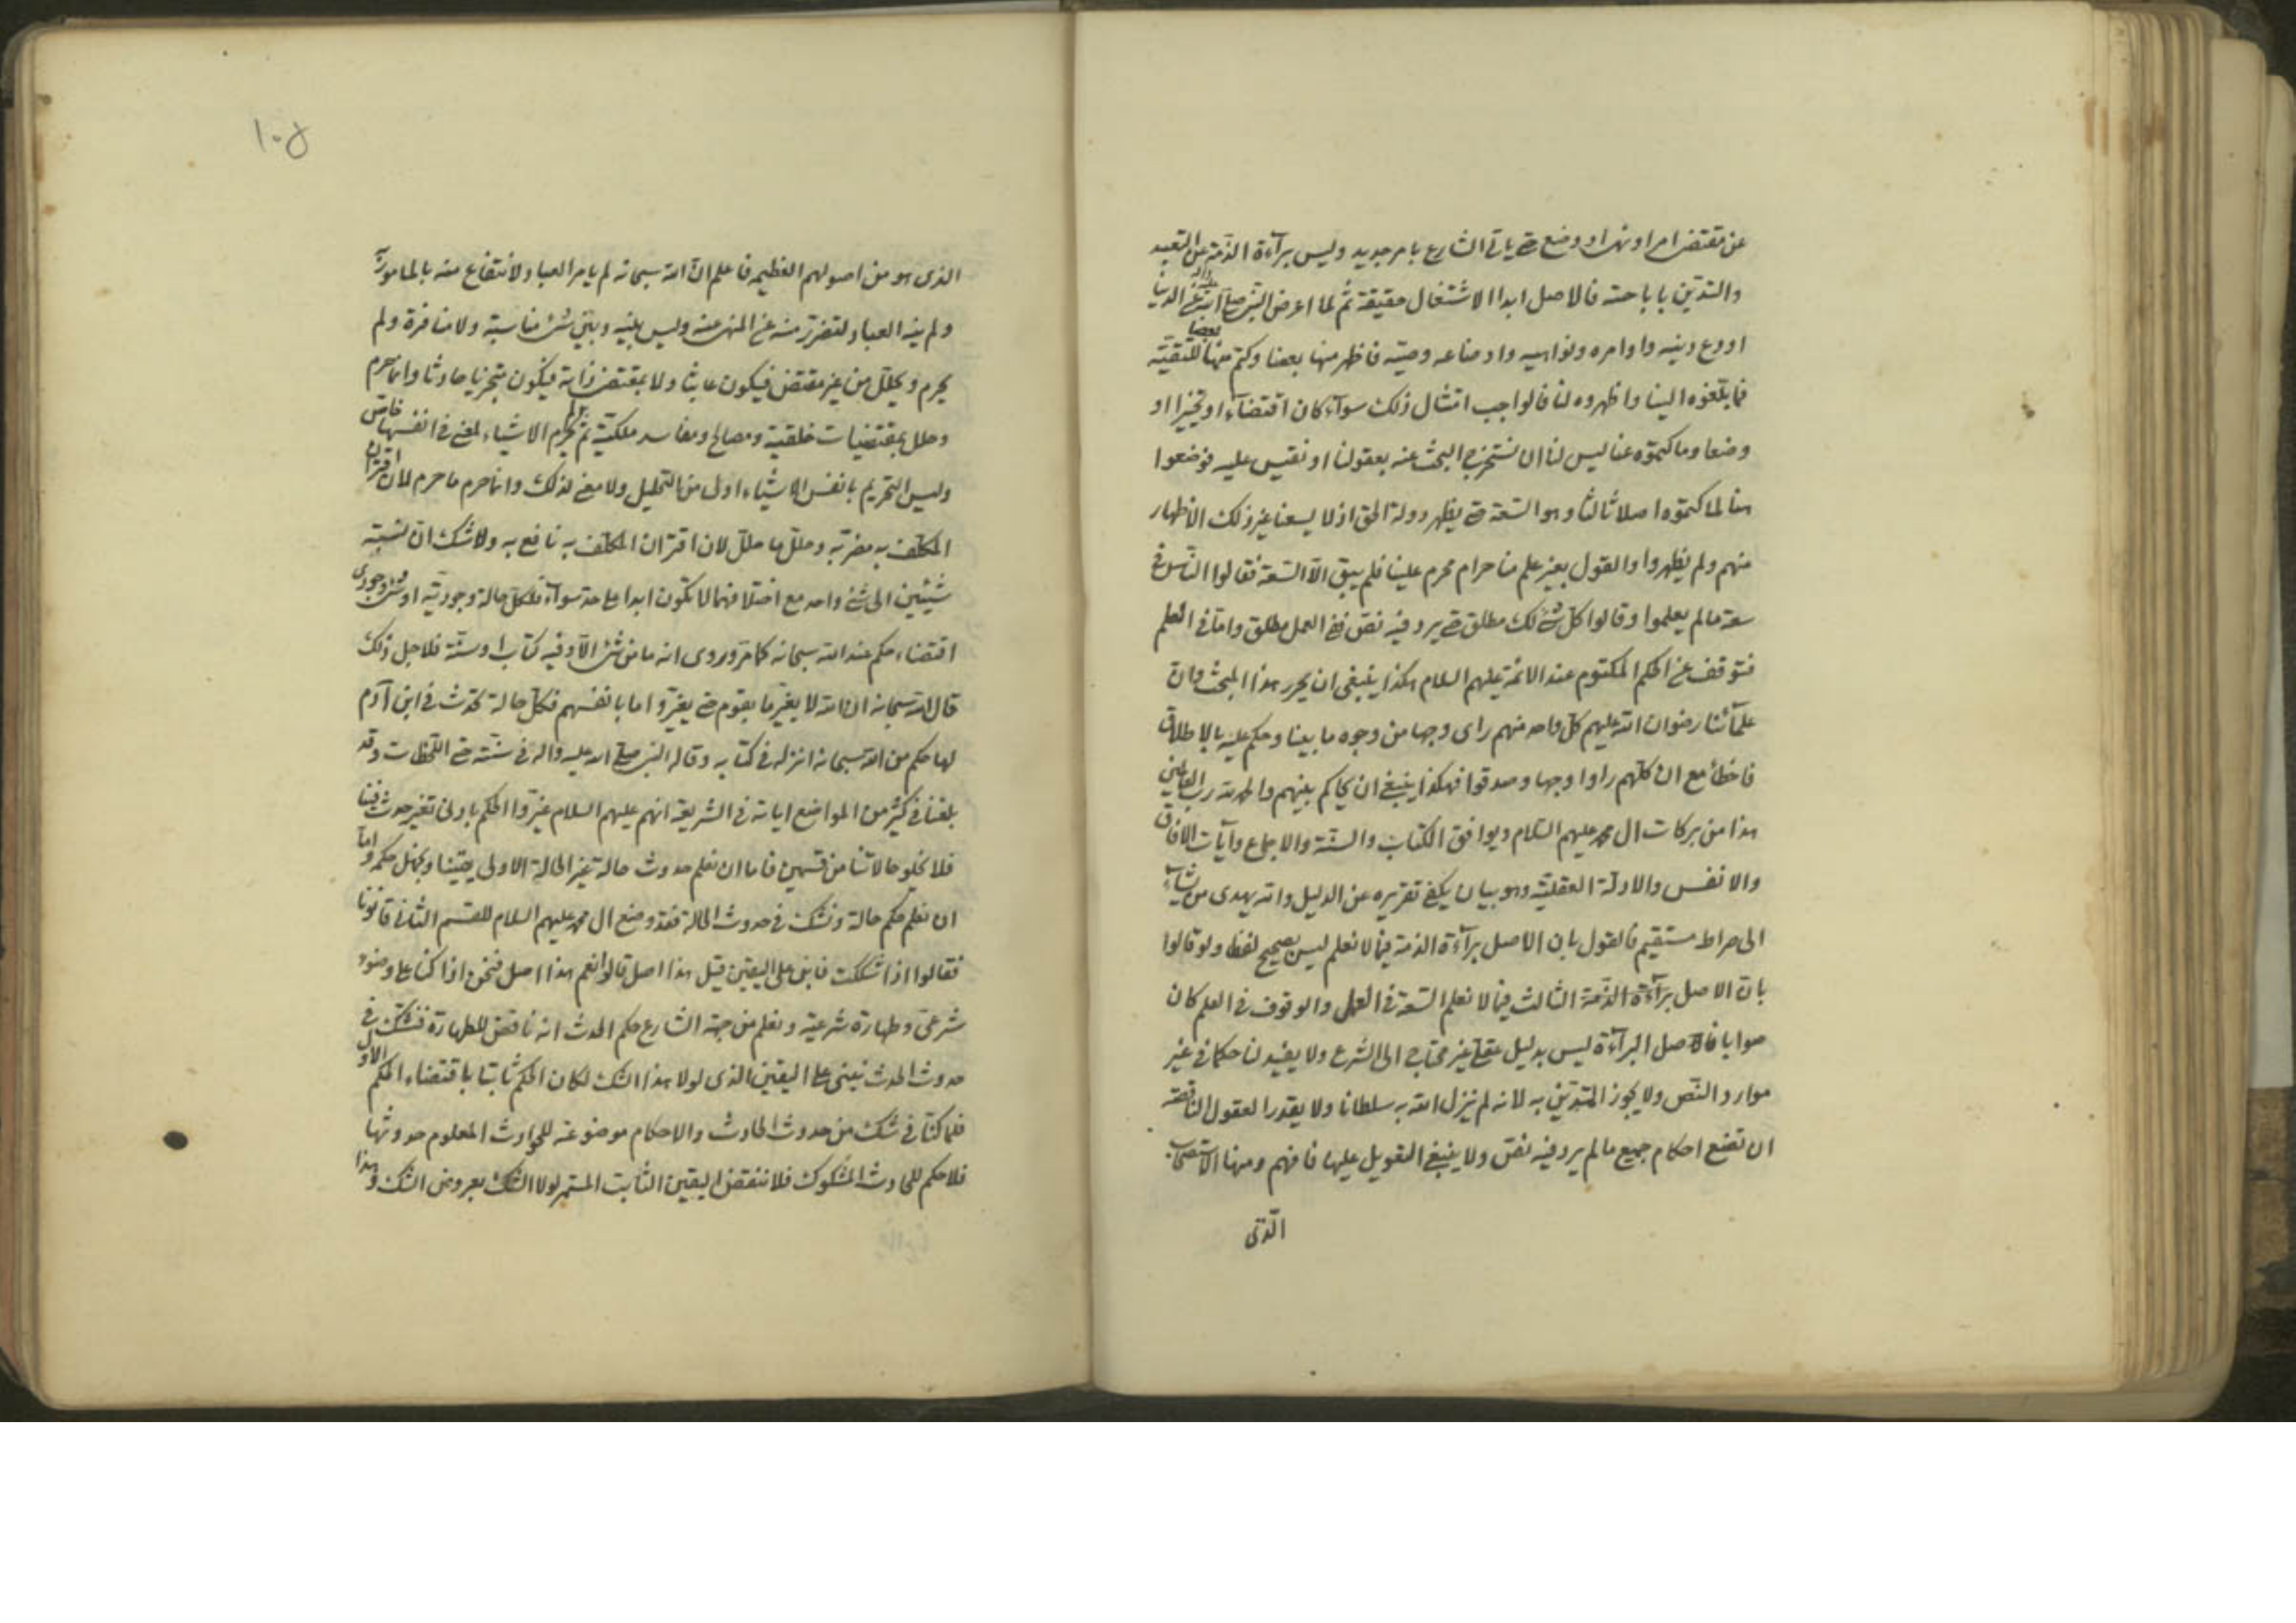 عن مقتضى امر او نهى او وضع حتى ياتى الشارع بامر جديد وليس برآءة الذمة عن التعبد
والتدين باباحته فالاصل ابدا الاشتغال حقيقة ثم لما اعرض النبى صلى الله عليه وآله عن الدنيا
اودع دينه واوامره ونواهيه واوضاعه وصيه فاظهر منها بعضا وكتم منها بعضا للتقية
فما بلغوه الينا واظهروه لنا فالواجب امتثال ذلك سوآء كان اقتضاء او تخييرا او
وضعا وما كتموه عنا ليس لنا ان نستخرج البحث عنه بعقولنا او نقيس عليه فوضعوا
هنا لما كتموه اصلا ثالثا وهو السعة حتى يظهر دولة الحق اذ لا يسعنا غير ذلك الاظهار
منهم ولم يظهروا والقول بغير علم منا حرام محرم علينا فلم يبق الا السعة فقالوا الناس فى
سعة ما لم يعلموا وقالوا كل شئ لك مطلق حتى يرد فيه نص ففى العمل مطلق واما فى العلم
فتوقف عن الحكم المكتوم عند الائمة عليهم السلام هكذا ينبغى ان يحرر هذا المبحث وان
علمآئنا رضوان الله عليهم كل واحد منهم راى وجها من وجوه ما بينا وحكم عليه بالاطلاق
فاخطأ مع ان كلهم راوا وجها وصدقوا فهكذا ينبغى ان يحاكم بينهم والحمد لله رب العالمين
هذا من بركات ال محمد عليهم السلام ويوافق الكتاب والسنة والاجماع وآيات الافاق
والانفس والادلة العقلية وهو بيان يكفى تقريره عن الدليل والله يهدى من يشآء
الى صراط مستقيم فالقول بان الاصل برآءة الذمة فيما لا نعلم ليس بصحيح لفظا ولو قالوا
بان الاصل برآءة الذمة الثالث فيما لا نعلم السعة فى العمل والوقوف فى العلم كان
صوابا فالاصل البرآءة ليس بدليل عقلى غير محتاج الى الشرع ولا يفيد لنا حكما فى غير
موارد النص ولا يجوز التدين به لانه لم ينزل الله به سلطانا ولا يقدر العقول الناقصة
ان تضع احكام جميع ما لم يرد فيه نص ولا ينبغى التعويل عليها فافهم ومنها الاستصحاب
الذى
١٠۵
الذى هو من اصولهم العظيمه فاعلم ان الله سبحانه لم يامر العباد لانتفاع منه بالمامور به
ولم ينه العباد لتضرر منه عن المنهى عنه وليس بينه وبين شئ مناسبة ولا منافرة ولم
يحرم ويحلل من غير مقتض فيكون عابثا ولا بمقتضى ذاته فيكون متجزيا حادثا وانما حرم
وحلل بمقتضيات خلقية ومصالح ومفاسد ملكية ثم لم يحرم الاشياء لمعنى فى انفسها خاص
وليس التحريم بانفس الاشياء اولى من التحليل ولا معنى لذلك وانما حرم ما حرم لان اقتران
المكلف به مضر به وحلل ما حلل لان اقتران المكلف به نافع به ولا شك ان نسبة
شيئين الى شئ واحد مع اختلافهما لا تكون ابدا على حد سوآء فلكل حالة وجودية او شئ وجودى
اقتضاء حكم عند الله سبحانه كما مر وروى انه ما من شئ الا وفيه كتاب او سنة فلاجل ذلك
قال الله سبحانه ان الله لا يغير ما بقوم حتى يغيروا ما بانفسهم فكل حالة تحدث فى ابن آدم
لها حكم من الله سبحانه انزله فى كتابه وقاله النبى صلى الله عليه واله فى سنته حتى اللحظات وقد
بلغنا فى كثير من المواضع اياته فى الشريعة انهم عليهم السلام غيروا الحكم بادنى تغير حدث فينا
فلا يخلو حالاتنا من قسمين فاما ان نعلم حدوث حالة غير الحالة الاولى يقينا ونجهل حكمه واما
ان نعلم حكم حالة ونشك فى حدوث الحالة فقد وضع ال محمد عليهم السلام للقسم الثانى قانونا
فقالوا اذا شككت فابن على اليقين قيل هذا اصل قالوا نعم هذا اصل فنحن اذا كنا على وضوء
شرعى وطهارة شرعية ونعلم من جهة الشارع حكم الحدث انه ناقض للطهارة فنشك فى
حدوث الحدث نبنى على اليقين الذى لولا هذا الشك لكان الحكم ثابتا باقتضاء الحكم الاول
فلما كنا فى شك من حدوث الحادث والاحكام موضوعة للحوادث المعلوم حدوثها
فلا حكم للحادث المشكوك فلا ننقض اليقين الثابت المستمر لولا الشك بعروض الشك وهذا